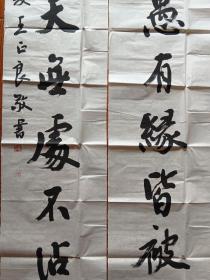 愚有緣皆被
天無處不沾
王正良敬書